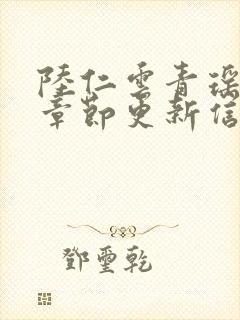 陸仁雲青瑶
章節更新信
鄧璽乾